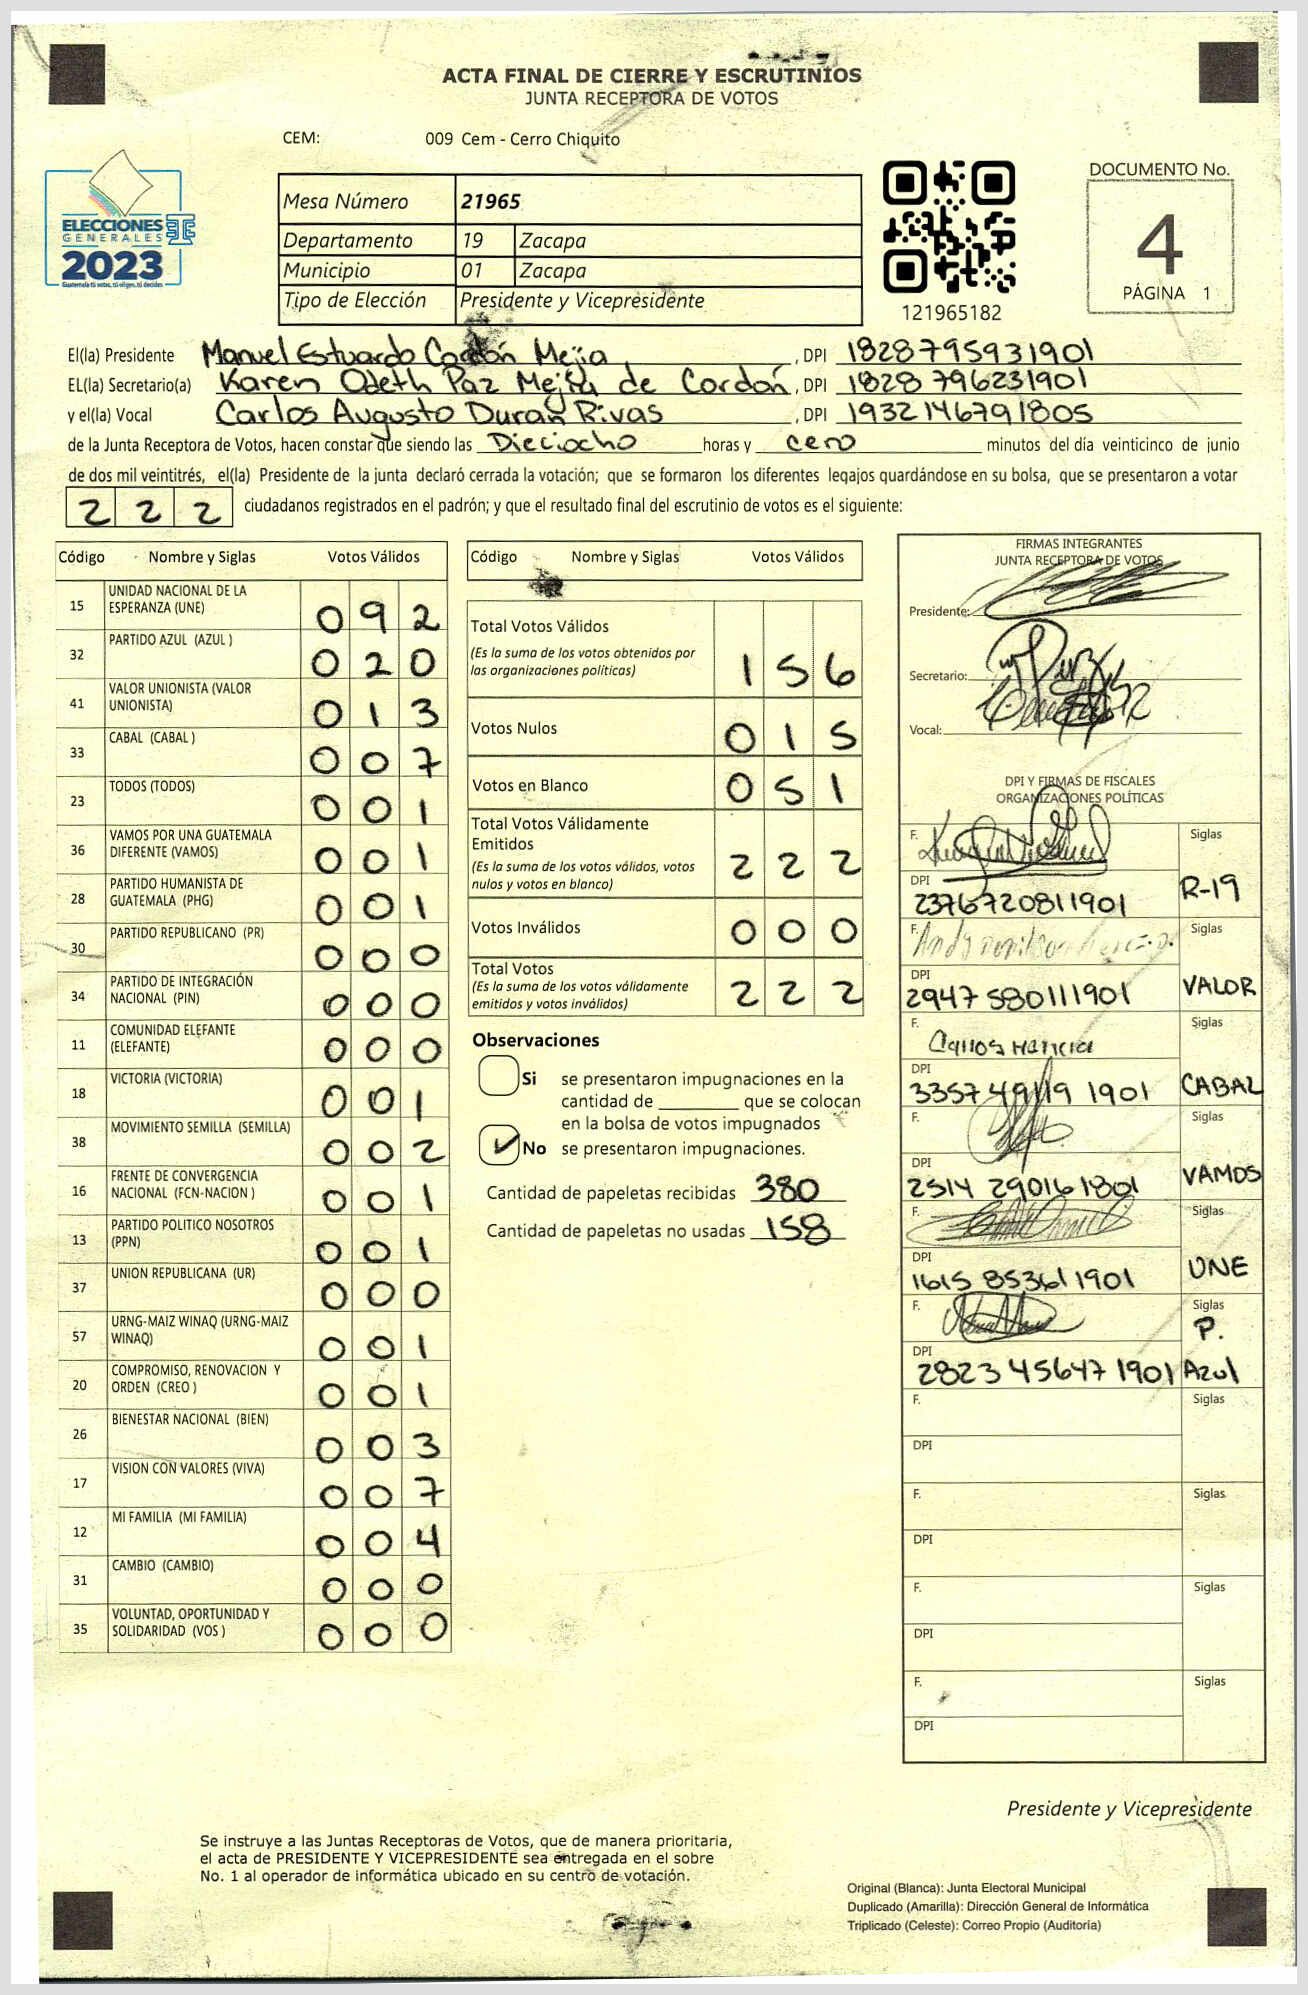 ACTA FINAL DE CIERRE Y ESCRUTINIOS
JUNTA RECEPTORA DE VOTOS
CEM: 009 Cem - Cerro Chiquito
ELECCIONES
GENERALES
2023
Guatemala tú votas, tú eliges, tú decides
Mesa Número 21965
Departamento 19 Zacapa
Municipio 01 Zacapa
Tipo de Elección Presidente y Vicepresidente
121965182
DOCUMENTO No.
4
PÁGINA 1
El(la) Presidente Manuel Estuardo Cordón Mejia, DPI 1828795931901
EL(la) Secretario(a) Karen Odeth Paz Mejía de Cordón, DPI 1828 796231901
y el(la) Vocal Carlos Augusto Duran Rivas, DPI 1932146791805
de la Junta Receptora de Votos, hacen constar que siendo las Dieciocho horas y cero minutos del día veinticinco de junio
de dos mil veintitrés, el(la) Presidente de la junta declaró cerrada la votación; que se formaron los diferentes legajos quardándose en su bolsa, que se presentaron a votar
2 2 2 ciudadanos registrados en el padrón; y que el resultado final del escrutinio de votos es el siguiente:
Código Nombre y Siglas Votos Válidos
15 UNIDAD NACIONAL DE LA ESPERANZA (UNE) 0 9 2
32 PARTIDO AZUL (AZUL ) 0 2 0
41 VALOR UNIONISTA (VALOR UNIONISTA) 0 1 3
33 CABAL (CABAL ) 0 0 7
23 TODOS (TODOS) 0 0 1
36 VAMOS POR UNA GUATEMALA DIFERENTE (VAMOS) 0 0 1
28 PARTIDO HUMANISTA DE GUATEMALA (PHG) 0 0 1
30 PARTIDO REPUBLICANO (PR) 0 0 0
34 PARTIDO DE INTEGRACIÓN NACIONAL (PIN) 0 0 0
11 COMUNIDAD ELEFANTE (ELEFANTE) 0 0 0
18 VICTORIA (VICTORIA) 0 0 1
38 MOVIMIENTO SEMILLA (SEMILLA) 0 0 2
16 FRENTE DE CONVERGENCIA NACIONAL (FCN-NACION ) 0 0 1
13 PARTIDO POLITICO NOSOTROS (PPN) 0 0 1
37 UNION REPUBLICANA (UR) 0 0 0
57 URNG-MAIZ WINAQ (URNG-MAIZ WINAQ) 0 0 1
20 COMPROMISO, RENOVACION Y ORDEN (CREO ) 0 0 1
26 BIENESTAR NACIONAL (BIEN) 0 0 3
17 VISION CON VALORES (VIVA) 0 0 7
12 MI FAMILIA (MI FAMILIA) 0 0 4
31 CAMBIO (CAMBIO) 0 0 0
35 VOLUNTAD, OPORTUNIDAD Y SOLIDARIDAD (VOS ) 0 0 0
Código Nombre y Siglas Votos Válidos
Total Votos Válidos
(Es la suma de los votos obtenidos por
las organizaciones políticas) 1 5 6
Votos Nulos 0 1 5
Votos en Blanco 0 5 1
Total Votos Válidamente
Emitidos
(Es la suma de los votos válidos, votos
nulos y votos en blanco) 2 2 2
Votos Inválidos 0 0 0
Total Votos
(Es la suma de los votos válidamente
emitidos y votos inválidos) 2 2 2
Observaciones
Si se presentaron impugnaciones en la
cantidad de ________ que se colocan
en la bolsa de votos impugnados
No se presentaron impugnaciones.
Cantidad de papeletas recibidas 380
Cantidad de papeletas no usadas 158
FIRMAS INTEGRANTES
JUNTA RECEPTORA DE VOTOS
Presidente:
Secretario:
Vocal:
DPI Y FIRMAS DE FISCALES
ORGANIZACIONES POLÍTICAS
F. Siglas
DPI 2376720811901 R-19
F. Siglas
DPI 2947 580111901 VALOR
F. Carlos Siglas
DPI 3357 49119 1901 CABAL
F. Siglas
DPI 2514 290161801 VAMOS
F. Siglas
DPI 1615 85361 1901 UNE
F. Siglas P.
DPI 2823 45647 1901 Azul
F. Siglas
DPI
F. Siglas
DPI
F. Siglas
DPI
F. Siglas
DPI
Presidente y Vicepresidente
Se instruye a las Juntas Receptoras de Votos, que de manera prioritaria,
el acta de PRESIDENTE Y VICEPRESIDENTE sea entregada en el sobre
No. 1 al operador de informática ubicado en su centro de votación.
Original (Blanca): Junta Electoral Municipal
Duplicado (Amarilla): Dirección General de Informática
Triplicado (Celeste): Correo Propio (Auditoría)